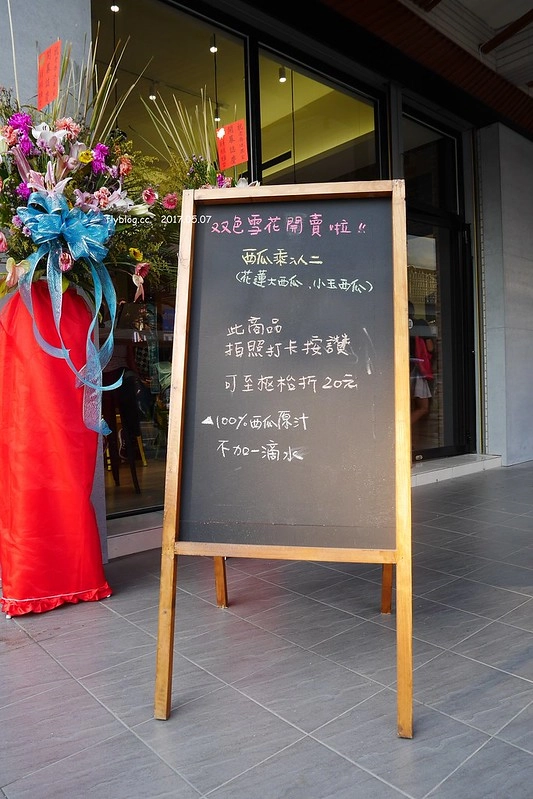 flyblog.cc 2017.05.07
双色雪花開賣啦!!
西瓜乘以二
(花蓮大西瓜、小玉西瓜)
此商品
拍照打卡按讚
可至柜枱折20元
▲100%西瓜原汁
不加一滴水